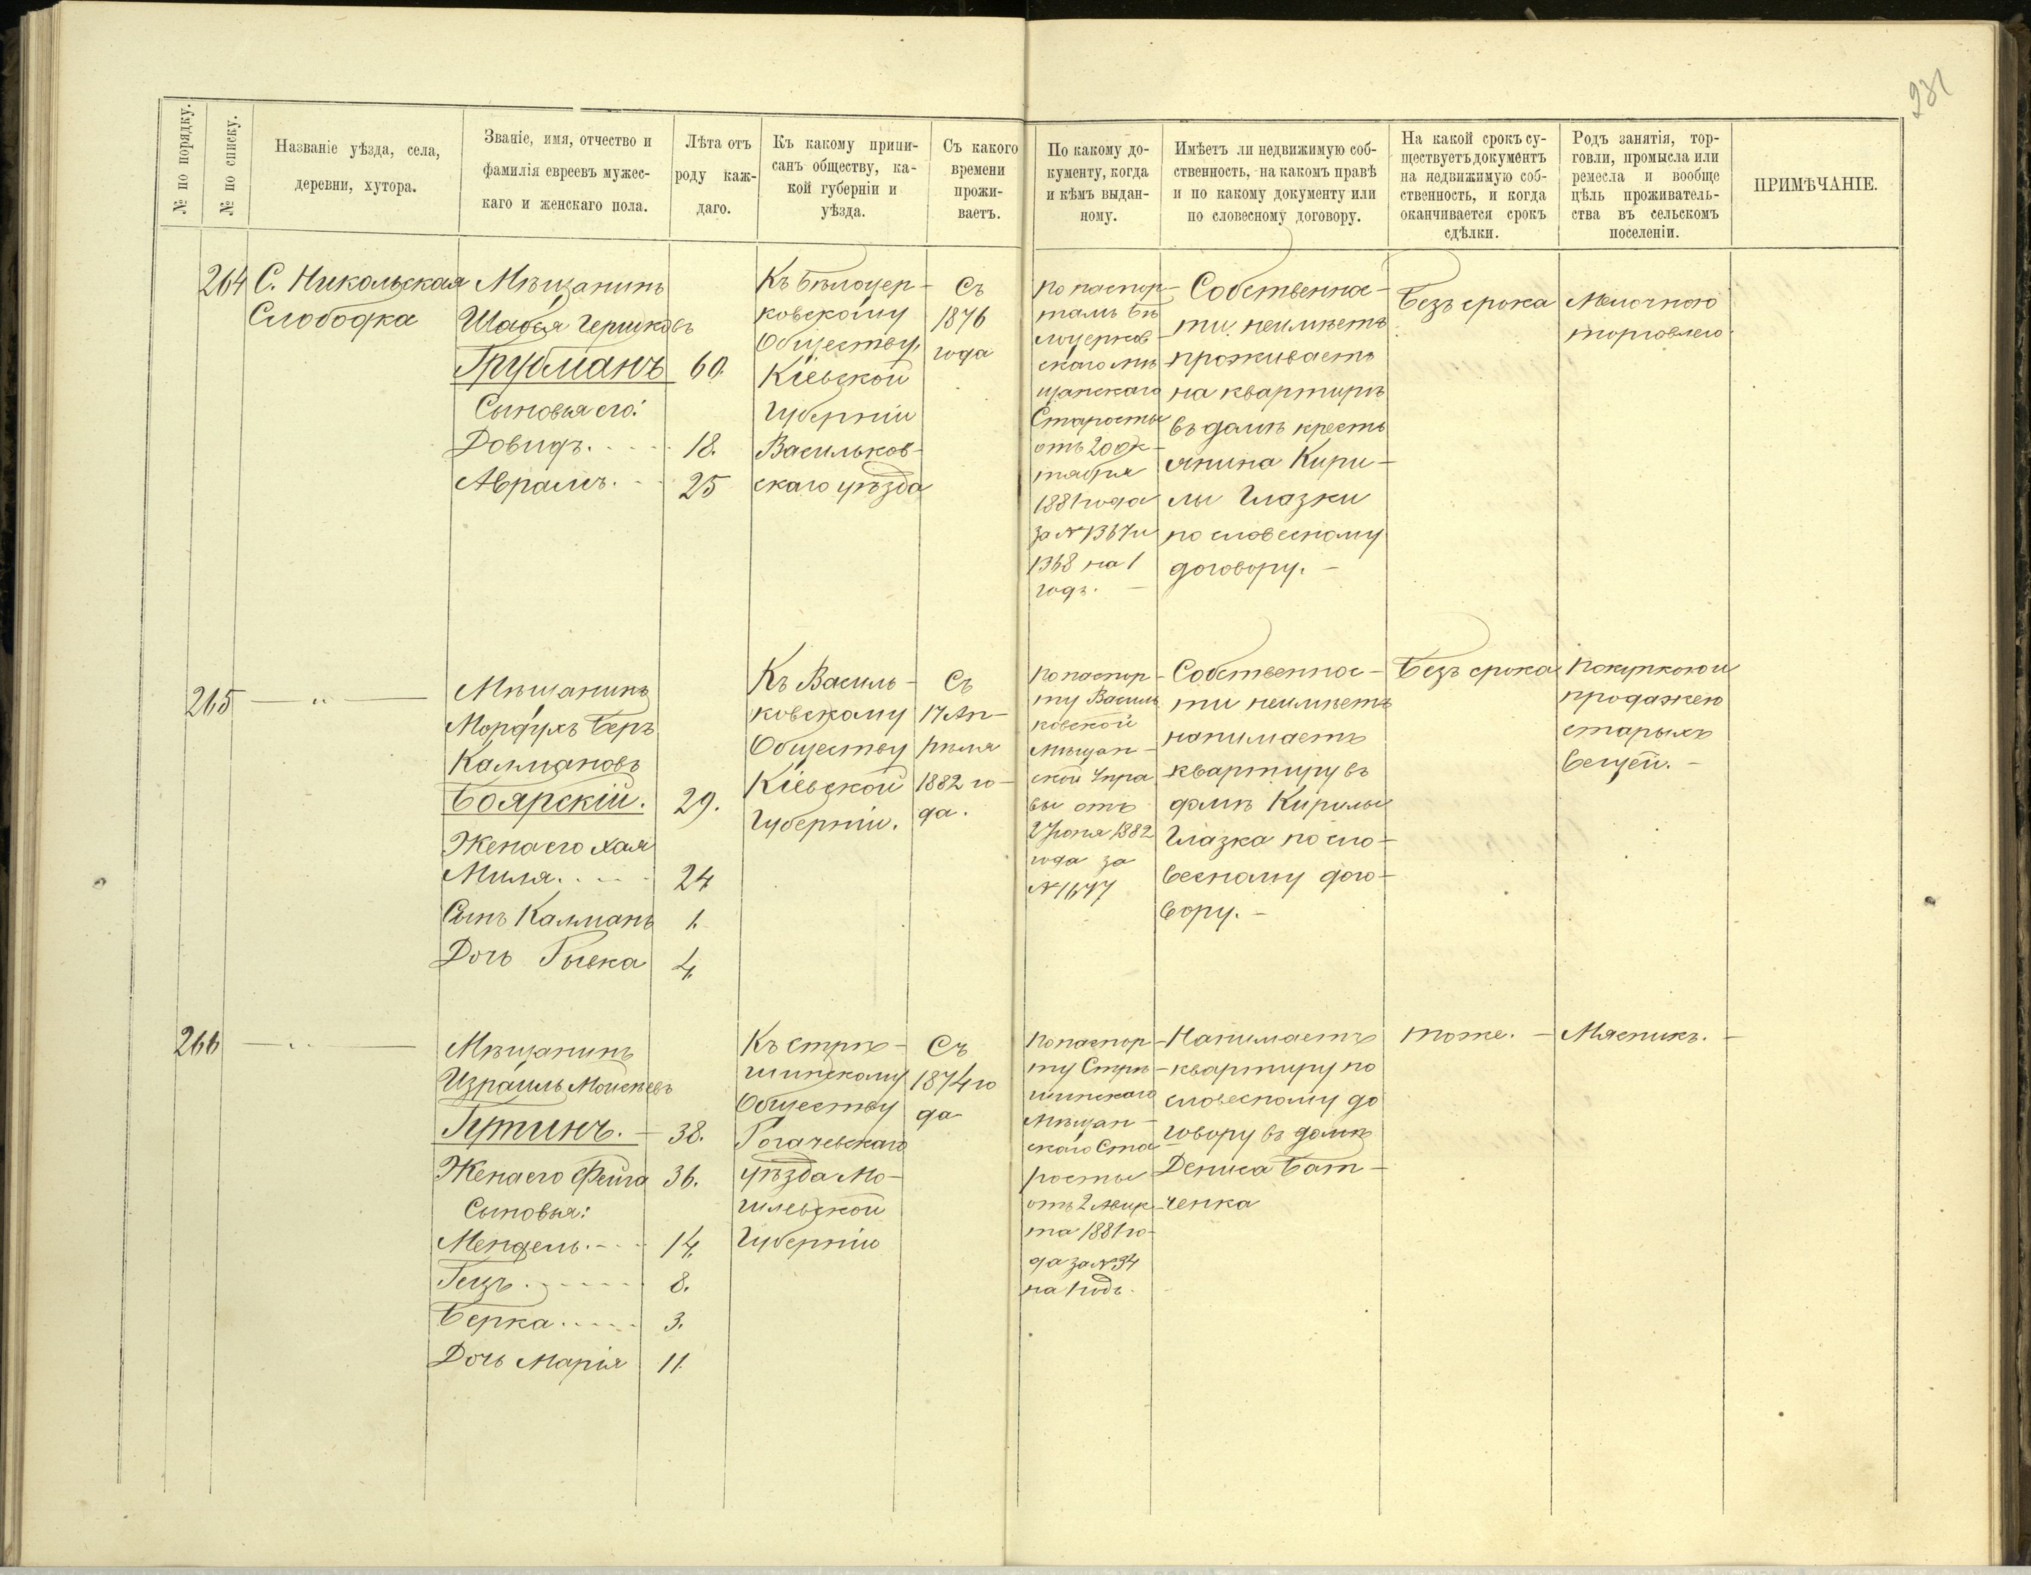 231
№ по порядку.
№ по списку.
Названіе уѣзда, села,
деревни, хутора.
Званіе, имя, отчество и
фамилія евреевъ мужес-
каго и женскаго пола.
Лѣта отъ
роду каж-
даго.
Къ какому припи-
санъ обществу, ка-
кой губерніи и
уѣзда.
Съ какого
времени
прожи-
ваетъ.
По какому до-
кументу, когда
и кѣмъ выдан-
ному.
Имѣетъ ли недвижимую соб-
ственность, на какомъ правѣ
и по какому документу или
по словесному договору.
На какой срокъ су-
ществуетъ документъ
на недвижимую соб-
ственность, и когда
оканчивается срокъ
сдѣлки.
Родъ занятія, тор-
говли, промысла или
ремесла и вообще
цѣль проживатель-
ства въ сельскомъ
поселеніи.
ПРИМѢЧАНІЕ.
264
С. Никольская
Слободка
Мѣщанинъ
Шабся Гершковъ
Грубманъ 60.
Сыновья его:
Довидъ. 18.
Аврамъ. 25
Къ Бѣлоцер-
ковскому
Обществу,
Кіевской
Губерніи
Васильков-
скаго уѣзда
Съ
1876
года
По паспор-
тамъ Бѣ
лоцерков-
скаго мѣ
щанскаго
Старосты
отъ 20 Ок-
тября
1881 года
за № 1367 и
1368 на 1
годъ.
Собственнос-
ти неимѣетъ
проживаетъ
на квартирѣ
въ домѣ кресть
янина Кири-
лы Глазки
по словесному
договору. -
Безъ срока
Мелочною
торговлею.
265
— " —
Мѣщанинъ
Мордухъ Беръ
Калмановъ
Боярскій. 29.
Жена его Хая
Миля. 24
Сынъ Калманъ 1.
Дочь Рывка 4
Къ Василь-
ковскому
Обществу
Кіевской
Губерніи.
Съ
17 Ап-
рѣля
1882 го-
да.
По паспор-
ту Василь
ковской
Мѣщан-
ской Упра
вы отъ
2 Юня 1882
года за
№ 1647
Собственнос-
ти неимѣетъ
нанимаетъ
квартиру въ
домѣ Кирилы
Глазка по сло-
весному дого-
вору. -
Безъ срока
Покупкою и
продажею
старыхъ
вещей. -
266
— " —
Мѣщанинъ
Израиль Моисѣевъ
Гутинъ. - 38.
Жена его Фейга 36.
Сыновья:
Мендель. 14.
Гецъ. 8.
Берка. 3.
Дочь Марія 11.
Къ Стрѣ-
шинскому
Обществу
Рогачевскаго
уѣзда Мо-
гилевской
Губерніи
Съ
1874 го
да
По паспор-
ту Стрѣ-
шинскаго
Мѣщан-
скаго Ста
росты
отъ 2 Авгус-
та 1881 го-
да за № 34
на 1 годъ.
Нанимаетъ
квартиру по
словесному до
говору въ домѣ
Дениса Бат-
ченка
тоже. -
Мясникъ. -